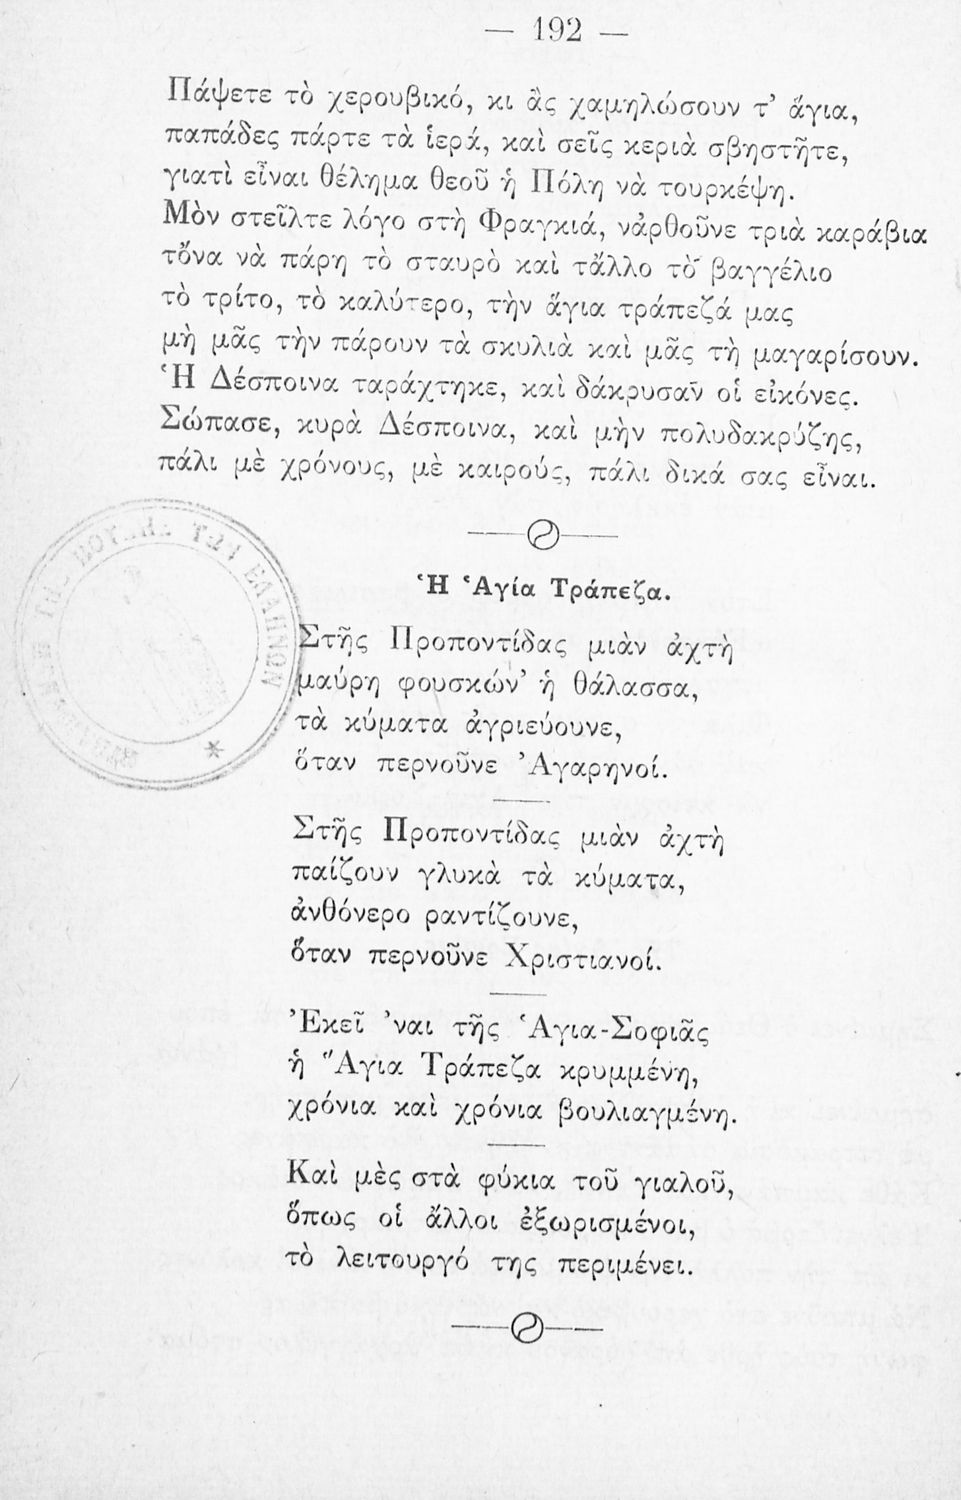 — 192 —
Πάψετε τὸ χερουβικό, κι ἂς χαμηλώσουν τ' ἅγια,
παπάδες πάρτε τὰ ἱερά, καὶ σεῖς κεριὰ σβηστῆτε,
γιατὶ εἶναι θέλημα θεοῦ ἡ Πόλη νὰ τουρκέψη.
Μὸν στεῖλτε λόγο στὴ Φραγκιά, νἀρθοῦνε τριὰ καράβια
τὄνα νὰ πάρη τὸ σταυρὸ καὶ τἄλλο τὸ βαγγέλιο
τὸ τρίτο, τὸ καλύτερο, τὴν ἅγια τράπεζά μας
μὴ μᾶς τὴν πάρουν τὰ σκυλιὰ καὶ μᾶς τὴ μαγαρίσουν.
Ἡ Δέσποινα ταράχτηκε, καὶ δάκρυσαν οἱ εἰκόνες.
Σώπασε, κυρὰ Δέσποινα, καὶ μὴν πολυδακρύζης,
πάλι μὲ χρόνους, μὲ καιρούς, πάλι δικά σας εἶναι.
Ἡ Ἁγία Τράπεζα.
Στῆς Προποντίδας μιὰν ἀχτὴ
μαύρη φουσκών' ἡ θάλασσα,
τὰ κύματα ἀγριεύουνε,
ὅταν περνοῦνε Ἀγαρηνοί.
Στῆς Προποντίδας μιὰν ἀχτὴ
παίζουν γλυκὰ τὰ κύματα,
ἀνθόνερο ραντίζουνε,
ὅταν περνοῦνε Χριστιανοί.
Ἐκεῖ 'ναι τῆς Ἁγια-Σοφιᾶς
ἡ Ἅγια Τράπεζα κρυμμένη,
χρόνια καὶ χρόνια βουλιαγμένη.
Καὶ μὲς στὰ φύκια τοῦ γιαλοῦ,
ὅπως οἱ ἄλλοι ἐξωρισμένοι,
τὸ λειτουργό της περιμένει.
ΤΩΝ ΕΛΛΗΝΩΝ